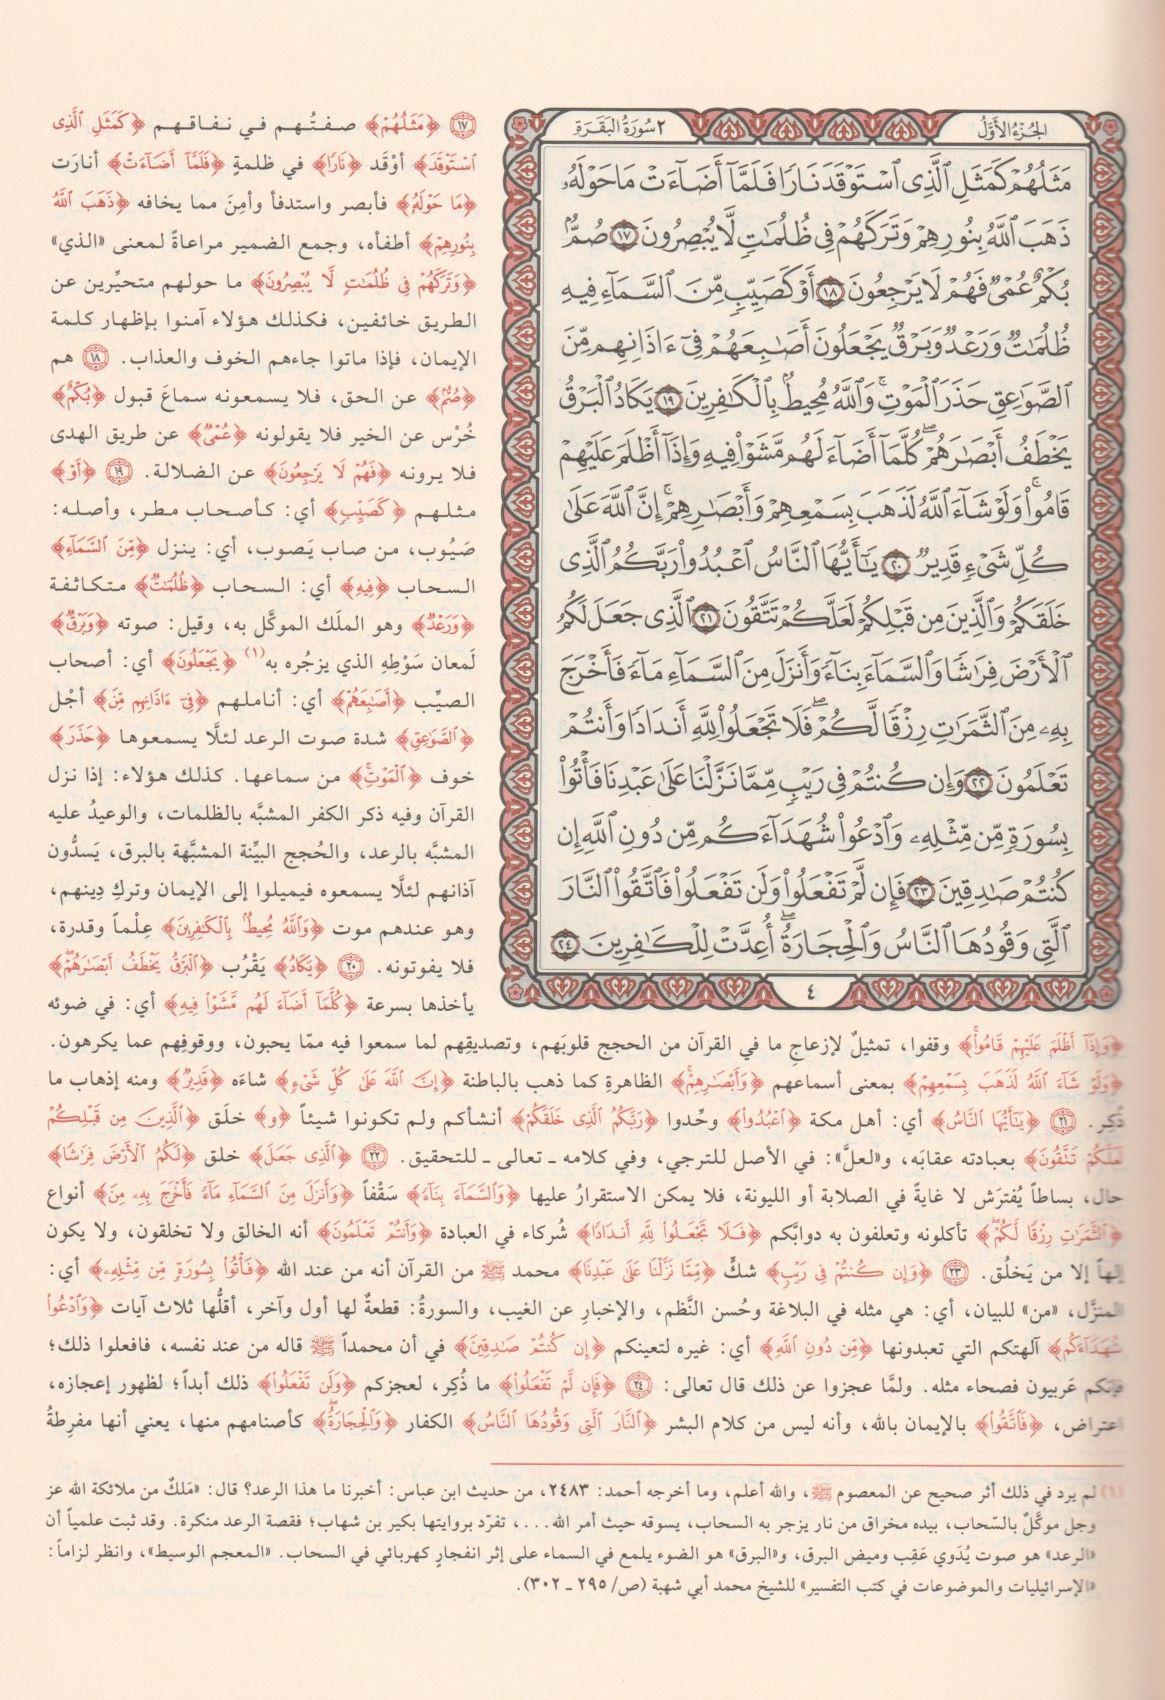 الجزء الأول
٢ سورة البقرة
مَثَلُهُمْ كَمَثَلِ ٱلَّذِى ٱسْتَوْقَدَ نَارًا فَلَمَّآ أَضَآءَتْ مَا حَوْلَهُۥ
ذَهَبَ ٱللَّهُ بِنُورِهِمْ وَتَرَكَهُمْ فِى ظُلُمَٰتٍ لَّا يُبْصِرُونَ ١٧ صُمٌّۢ
بُكْمٌ عُمْىٌ فَهُمْ لَا يَرْجِعُونَ ١٨ أَوْ كَصَيِّبٍ مِّنَ ٱلسَّمَآءِ فِيهِ
ظُلُمَٰتٌ وَرَعْدٌ وَبَرْقٌ يَجْعَلُونَ أَصَٰبِعَهُمْ فِىٓ ءَاذَانِهِم مِّنَ
ٱلصَّوَٰعِقِ حَذَرَ ٱلْمَوْتِ ۚ وَٱللَّهُ مُحِيطٌۢ بِٱلْكَٰفِرِينَ ١٩ يَكَادُ ٱلْبَرْقُ
يَخْطَفُ أَبْصَٰرَهُمْ ۖ كُلَّمَآ أَضَآءَ لَهُم مَّشَوْا۟ فِيهِ وَإِذَآ أَظْلَمَ عَلَيْهِمْ
قَامُوا۟ ۚ وَلَوْ شَآءَ ٱللَّهُ لَذَهَبَ بِسَمْعِهِمْ وَأَبْصَٰرِهِمْ ۚ إِنَّ ٱللَّهَ عَلَىٰ
كُلِّ شَىْءٍ قَدِيرٌ ٢٠ يَٰٓأَيُّهَا ٱلنَّاسُ ٱعْبُدُوا۟ رَبَّكُمُ ٱلَّذِى
خَلَقَكُمْ وَٱلَّذِينَ مِن قَبْلِكُمْ لَعَلَّكُمْ تَتَّقُونَ ٢١ ٱلَّذِى جَعَلَ لَكُمُ
ٱلْأَرْضَ فِرَٰشًا وَٱلسَّمَآءَ بِنَآءً وَأَنزَلَ مِنَ ٱلسَّمَآءِ مَآءً فَأَخْرَجَ
بِهِۦ مِنَ ٱلثَّمَرَٰتِ رِزْقًا لَّكُمْ ۖ فَلَا تَجْعَلُوا۟ لِلَّهِ أَندَادًا وَأَنتُمْ
تَعْلَمُونَ ٢٢ وَإِن كُنتُمْ فِى رَيْبٍ مِّمَّا نَزَّلْنَا عَلَىٰ عَبْدِنَا فَأْتُوا۟
بِسُورَةٍ مِّن مِّثْلِهِۦ وَٱدْعُوا۟ شُهَدَآءَكُم مِّن دُونِ ٱللَّهِ إِن
كُنتُمْ صَٰدِقِينَ ٢٣ فَإِن لَّمْ تَفْعَلُوا۟ وَلَن تَفْعَلُوا۟ فَٱتَّقُوا۟ ٱلنَّارَ
ٱلَّتِى وَقُودُهَا ٱلنَّاسُ وَٱلْحِجَارَةُ ۖ أُعِدَّتْ لِلْكَٰفِرِينَ ٢٤
٤
١٧ ﴿مَثَلُهُمْ﴾ صفتُهم في نفاقهم ﴿كَمَثَلِ ٱلَّذِى
ٱسْتَوْقَدَ﴾ أوْقَد ﴿نَارًا﴾ في ظلمةٍ ﴿فَلَمَّآ أَضَآءَتْ﴾ أنارَت
﴿مَا حَوْلَهُۥ﴾ فأبصر واستدفأ وأمِنَ مما يخافه ﴿ذَهَبَ ٱللَّهُ
بِنُورِهِمْ﴾ أطفأه، وجمع الضمير مراعاةً لمعنى «الذي»
﴿وَتَرَكَهُمْ فِى ظُلُمَٰتٍ لَّا يُبْصِرُونَ﴾ ما حولهم متحيِّرين عن
الطريق خائفين، فكذلك هؤلاء آمنوا بإظهار كلمة
الإيمان، فإذا ماتوا جاءهم الخوف والعذاب. ١٨ هم
﴿صُمٌّۢ﴾ عن الحق، فلا يسمعونه سماعَ قبول ﴿بُكْمٌ﴾
خُرْس عن الخير فلا يقولونه ﴿عُمْىٌ﴾ عن طريق الهدى
فلا يرونه ﴿فَهُمْ لَا يَرْجِعُونَ﴾ عن الضلالة. ١٩ ﴿أَوْ﴾
مثلهم ﴿كَصَيِّبٍ﴾ أي: كأصحاب مطر، وأصله:
صَيْوب، من صاب يَصوب، أي: ينزل ﴿مِّنَ ٱلسَّمَآءِ﴾
السحاب ﴿فِيهِ﴾ أي: السحاب ﴿ظُلُمَٰتٌ﴾ متكاثفة
﴿وَرَعْدٌ﴾ وهو الملَك الموكَّل به، وقيل: صوته ﴿وَبَرْقٌ﴾
لَمعان سَوْطِهِ الذي يزجُره به(١) ﴿يَجْعَلُونَ﴾ أي: أصحاب
الصيِّب ﴿أَصَٰبِعَهُمْ﴾ أي: أناملهم ﴿فِىٓ ءَاذَانِهِم مِّنَ﴾ أجْل
﴿ٱلصَّوَٰعِقِ﴾ شدة صوت الرعد لئلَّا يسمعوها ﴿حَذَرَ﴾
خوف ﴿ٱلْمَوْتِ ۚ﴾ من سماعها. كذلك هؤلاء: إذا نزل
القرآن وفيه ذكر الكفر المشبَّه بالظلمات، والوعيدُ عليه
المشبَّه بالرعد، والحُجج البيِّنة المشبَّهة بالبرق، يَسدُّون
آذانهم لئلَّا يسمعوه فيميلوا إلى الإيمان وتركِ دِينهم،
وهو عندهم موت ﴿وَٱللَّهُ مُحِيطٌۢ بِٱلْكَٰفِرِينَ﴾ عِلْماً وقدرة،
فلا يفوتونه. ٢٠ ﴿يَكَادُ﴾ يَقْرُب ﴿ٱلْبَرْقُ يَخْطَفُ أَبْصَٰرَهُمْ ۖ﴾
يأخذها بسرعة ﴿كُلَّمَآ أَضَآءَ لَهُم مَّشَوْا۟ فِيهِ﴾ أي: في ضوئه
﴿وَإِذَآ أَظْلَمَ عَلَيْهِمْ قَامُوا۟ ۚ﴾ وقفوا، تمثيلٌ لإزعاجِ ما في القرآن من الحجج قلوبَهم، وتصديقِهم لما سمعوا فيه ممّا يحبون، ووقوفِهم عما يكرهون.
﴿وَلَوْ شَآءَ ٱللَّهُ لَذَهَبَ بِسَمْعِهِمْ﴾ بمعنى أسماعهم ﴿وَأَبْصَٰرِهِمْ ۚ﴾ الظاهرةِ كما ذهب بالباطنة ﴿إِنَّ ٱللَّهَ عَلَىٰ كُلِّ شَىْءٍ﴾ شاءَه ﴿قَدِيرٌ﴾ ومنه إذهاب ما
ذُكِر. ٢١ ﴿يَٰٓأَيُّهَا ٱلنَّاسُ﴾ أي: أهل مكة ﴿ٱعْبُدُوا۟﴾ وحِّدوا ﴿رَبَّكُمُ ٱلَّذِى خَلَقَكُمْ﴾ أنشأكم ولم تكونوا شيئاً ﴿و﴾ خلَق ﴿ٱلَّذِينَ مِن قَبْلِكُمْ
لَعَلَّكُمْ تَتَّقُونَ﴾ بعبادته عقابَه، و«لعلَّ»: في الأصل للترجي، وفي كلامه ـ تعالى ـ للتحقيق. ٢٢ ﴿ٱلَّذِى جَعَلَ﴾ خلق ﴿لَكُمُ ٱلْأَرْضَ فِرَٰشًا﴾
حال، بساطاً يُفترَش لا غايةً في الصلابة أو الليونة، فلا يمكن الاستقرارُ عليها ﴿وَٱلسَّمَآءَ بِنَآءً﴾ سَقْفاً ﴿وَأَنزَلَ مِنَ ٱلسَّمَآءِ مَآءً فَأَخْرَجَ بِهِۦ مِنَ﴾ أنواع
﴿ٱلثَّمَرَٰتِ رِزْقًا لَّكُمْ ۖ﴾ تأكلونه وتعلفون به دوابَّكم ﴿فَلَا تَجْعَلُوا۟ لِلَّهِ أَندَادًا﴾ شُركاء في العبادة ﴿وَأَنتُمْ تَعْلَمُونَ﴾ أنه الخالق ولا تخلقون، ولا يكون
إلهاً إلا من يَخلُق. ٢٣ ﴿وَإِن كُنتُمْ فِى رَيْبٍ﴾ شكٍّ ﴿مِّمَّا نَزَّلْنَا عَلَىٰ عَبْدِنَا﴾ محمد ﷺ من القرآن أنه من عند الله ﴿فَأْتُوا۟ بِسُورَةٍ مِّن مِّثْلِهِۦ﴾ أي:
المنزَّل، «من» للبيان، أي: هي مثله في البلاغة وحُسن النَّظم، والإخبار عن الغيب، والسورةُ: قطعةٌ لها أول وآخر، أقلُّها ثلاث آيات ﴿وَٱدْعُوا۟
شُهَدَآءَكُم﴾ آلهتكم التي تعبدونها ﴿مِّن دُونِ ٱللَّهِ﴾ أي: غيره لتعينكم ﴿إِن كُنتُمْ صَٰدِقِينَ﴾ في أن محمداً ﷺ قاله من عند نفسه، فافعلوا ذلك؛
فإنكم عَربيون فصحاء مثله. ولمَّا عجزوا عن ذلك قال تعالى: ٢٤ ﴿فَإِن لَّمْ تَفْعَلُوا۟﴾ ما ذُكِر، لعجزكم ﴿وَلَن تَفْعَلُوا۟﴾ ذلك أبداً؛ لظهور إعجازه،
اعتراض، ﴿فَٱتَّقُوا۟﴾ بالإيمان بالله، وأنه ليس من كلام البشر ﴿ٱلنَّارَ ٱلَّتِى وَقُودُهَا ٱلنَّاسُ﴾ الكفار ﴿وَٱلْحِجَارَةُ ۖ﴾ كأصنامهم منها، يعني أنها مفرِطةُ
(١) لم يرد في ذلك أثر صحيح عن المعصوم ﷺ، والله أعلم، وما أخرجه أحمد: ٢٤٨٣، من حديث ابن عباس: أخبرنا ما هذا الرعد؟ قال: «مَلكٌ من ملائكة الله عز
وجل موكَّلٌ بالسّحاب، بيده مخراق من نار يزجر به السحاب، يسوقه حيث أمر الله...، تفرّد بروايتها بكير بن شهاب؛ فقصة الرعد منكرة. وقد ثبت علمياً أن
«الرعد» هو صوت يُدَوي عَقِب وميض البرق، و«البرق» هو الضوء يلمع في السماء على إثر انفجارٍ كهربائي في السحاب. «المعجم الوسيط»، وانظر لزاماً:
«الإسرائيليات والموضوعات في كتب التفسير» للشيخ محمد أبي شهبة (ص/ ٢٩٥ ـ ٣٠٢).